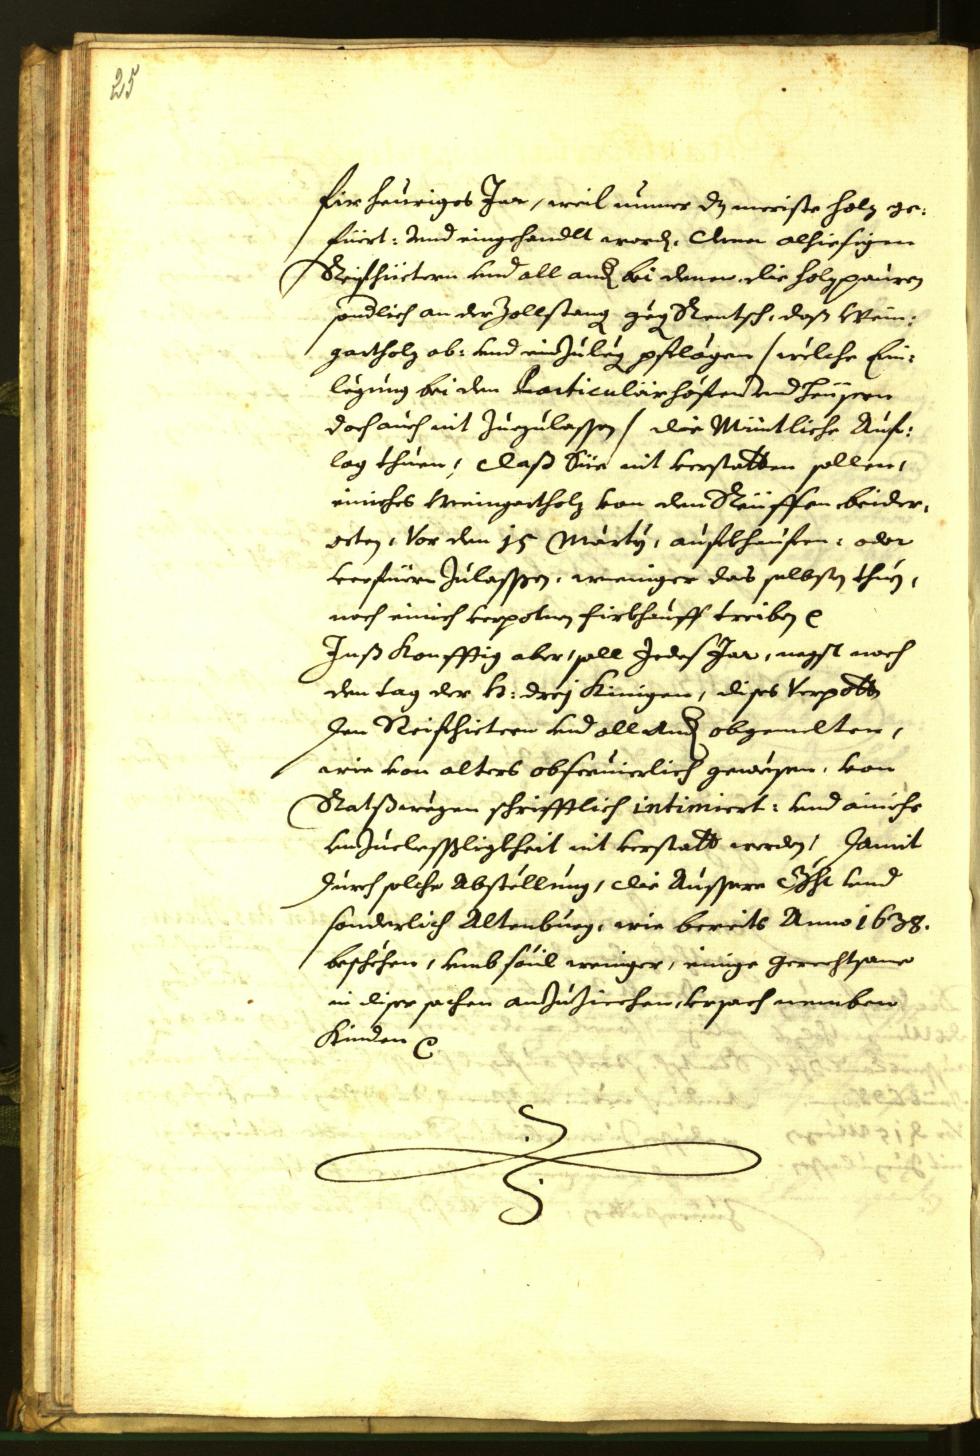 25
für heuriges Jar, weil nunmer dz meriste holz ge-
füert: und eingehandlt worden. Denen alhiesigen
Reifhüetern und all andern bei denen die holzpauren
sondlich an der Zollstang gegen Rentsch, das Wein-
gartholz ab: und einzulegen pflegen / welche Ein-
legung bei den Particular höfen und heüsern
doch auch nit zuezulassen / die Müntliche Auf-
lag thuen, daß Sie nit verstatten sollen,
einiches Weingartholz von den Reüffen beider-
orten, Vor den 15 Marty, aufkhaufen: oder
verfüern zulassen, weniger das selbsten thuen,
noch einich verpotnen firkhauff treiben
Inß Konfftig aber, soll Jedes Jar, negst nach
den tag der H: drej Kinigen, dises Verpott
den Reifhietern und all andern obgemelten,
wie von alters observierlich gewesen, von
Ratß wegen schrifftlich intimiert: und ainiche
unzuelessligkheit nit verstatt werden, damit
durch solche Abstellung, die Aussere und
sonderlich Altenburg, wie bereits Anno 1638.
beschehen, umb sovil weniger, einige Gerechtsame
in diser sachen anzuziechen, ursach nemben
Kinden